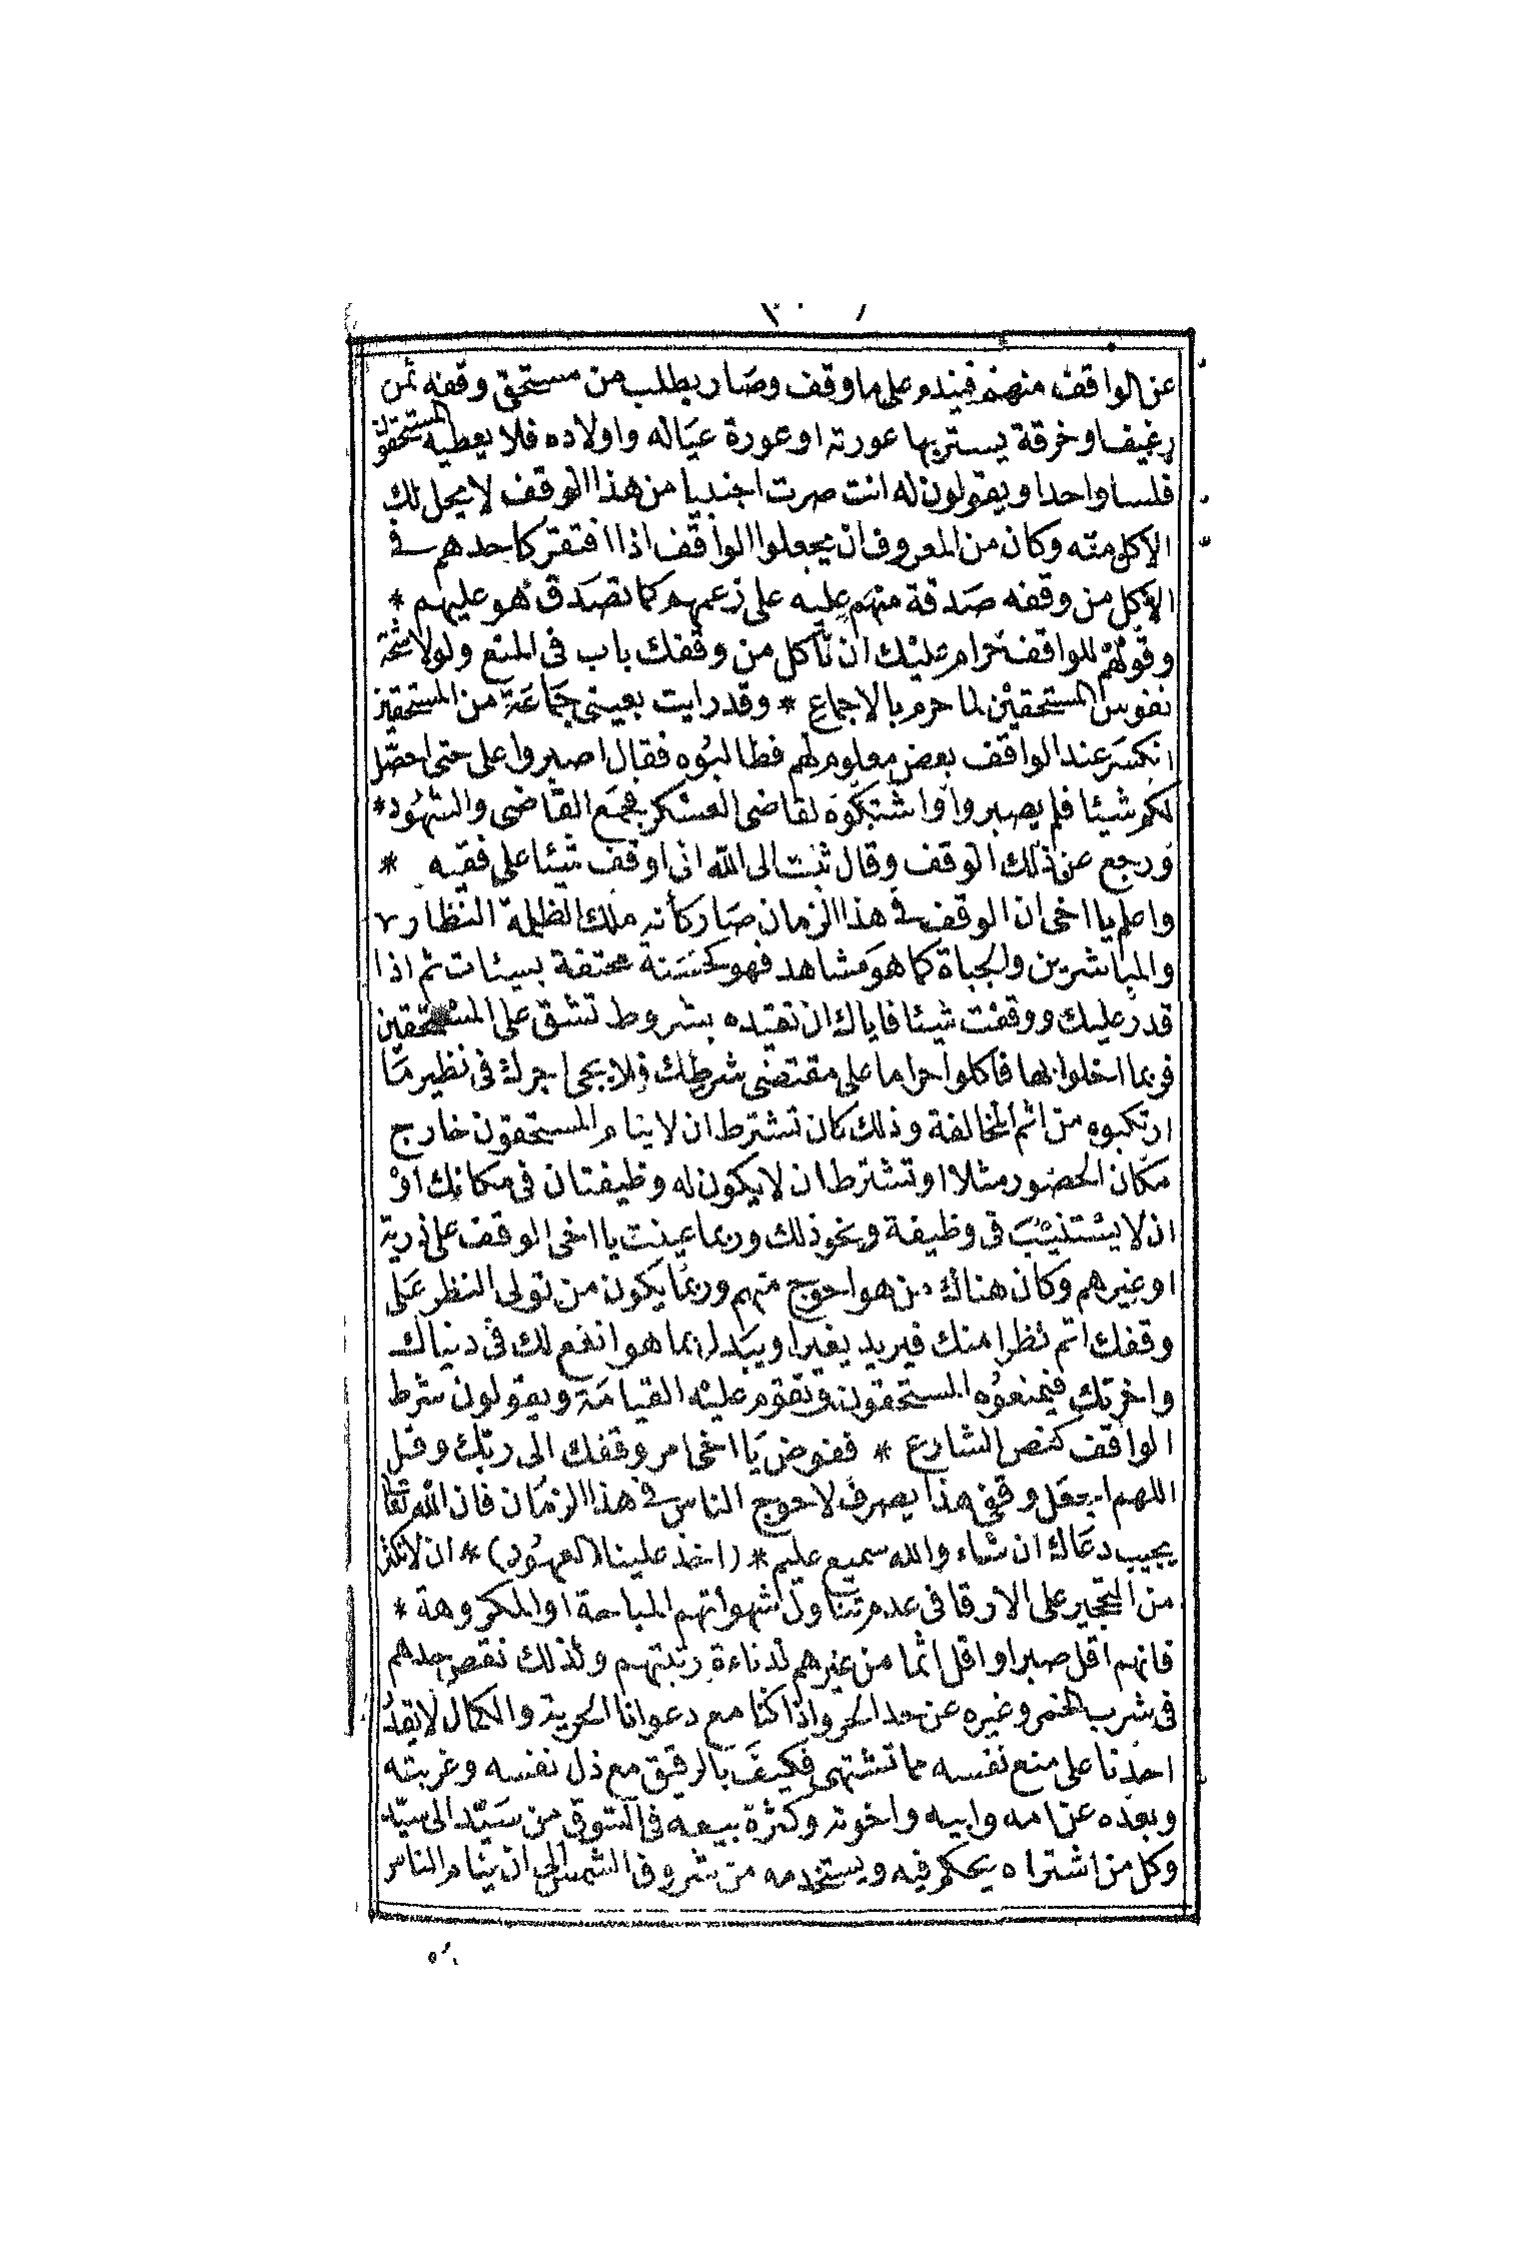 عن الواقف منهم فيندم على ما وقف وصار يطلب من مستحق وقفه ثمن
رغيف او خرقة يستر بها عورته او عورة عياله واولاده فلا يعطيه المستحقون
فلسا واحدا ويقولون له انت صرت اجنبيا من هذا الوقف لا يحل لك
الاكل منه وكان من المعروف ان يجعلوا الواقف اذا افتقر كاحدهم في
الاكل من وقفه صدقة منهم عليه على زعمهم كما تصدق هو عليهم *
وقولهم للواقف حرام عليك ان تأكل من وقفك باب فى المنع ولولا شحة
نفوس المستحقين لما حرم بالاجماع * وقد رايت بعينى جماعة من المستحقين
انكسر عند الواقف بعض معلوم لهم فطالبوه فقال اصبروا على حتى احصل
لكم شيئا فلم يصبروا واشتكوه لقاضى العسكر فجمع القاضى والشهود *
ورجع عن ذلك الوقف وقال تبت الى الله انى اوقف شيئا على فقيه *
واعلم يا اخى ان الوقف فى هذا الزمان صار كأنه ملك الظلمة النظار
والمباشرين والجباة كما هو مشاهد فهو كحسنة محتفة بسيئات ثم اذا
قدر عليك ووقفت شيئا فاياك ان تقيده بشروط تشق على المستحقين
فربما اخلوا بها فاكلوا حراما على مقتضى شرطك فلا يجى اجرك فى نظير ما
ارتكبوه من اثم المخالفة وذلك كان تشترط ان لا ينام المستحقون خارج
مكان الحضور مثلا او تشترط ان لا يكون له وظيفتان فى مكانك او
ان لا يستنيب فى وظيفة ونحو ذلك وربما عينت يا اخى الوقف على ذرية
او غيرهم وكان هناك من هو احوج منهم وربما يكون من تولى النظر على
وقفك اتم نظرا منك فيريد يغير او يبدل بما هو انفع لك فى دنياك
واخرتك فيمنعوه المستحقون وتقوم عليه القيامة ويقولون شرط
الواقف كنص الشارع * ففوض يا اخى امر وقفك الى ربك وقل
اللهم اجعل وقفى هذا يصرف لاحوج الناس فى هذا الزمان فان الله تعالى
يجيب دعاك ان شاء والله سميع عليم * (اخذ علينا العهود) * ان لا نكثر
من التحجير على الارقا فى عدم تناول شهواتهم المباحة او المكروهة *
فانهم اقل صبرا واقل اثما من غيرهم لدناءة رتبتهم ولذلك نقص حدهم
فى شرب الخمر وغيره عن حد الحر واذا كنا مع دعوانا الحرية والكمال لا يقدر
احدنا على منع نفسه مما تشتهى فكيف بالرقيق مع ذل نفسه وغربته
وبعده عن امه وابيه واخوته وكثرة بيعه فى السوق من سيد الى سيد
وكل من اشتراه يحكم فيه ويستخدمه من شروق الشمس الى ان ينام الناس